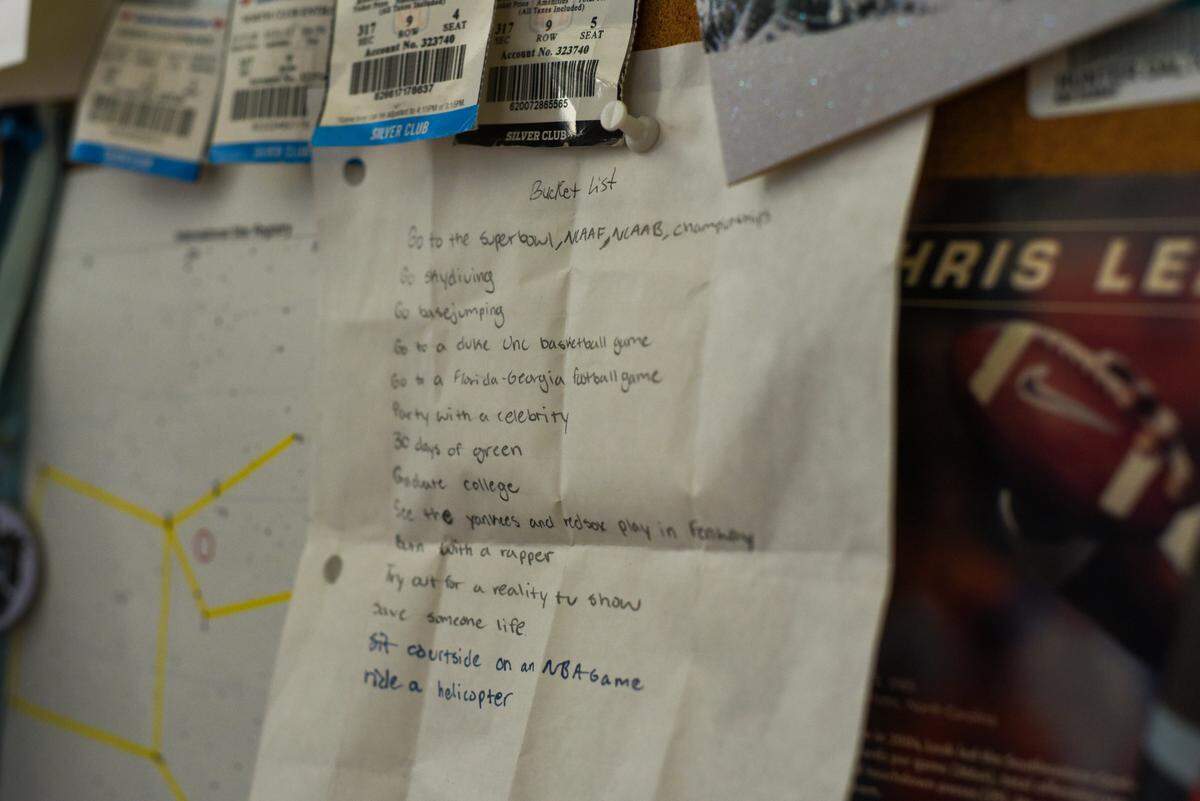 317 9 4
SEC ROW SEAT
Account No. 323740
SILVER CLUB
(All Taxes Included)
317 9 5
SEC ROW SEAT
Account No. 323740
620072865565
SILVER CLUB
Bucket List
Go to the superbowl, NCAAF, NCAAB, championships
Go skydiving
Go basejumping
Go to a duke unc basketball game
Go to a Florida-Georgia football game
Party with a celebrity
30 days of green
Graduate college
See the yankees and redsox play in Fenway
Burn with a rapper
Try out for a reality tv show
Save someone life
Sit courtside on an NBA Game
ride a helicopter
HRIS LE